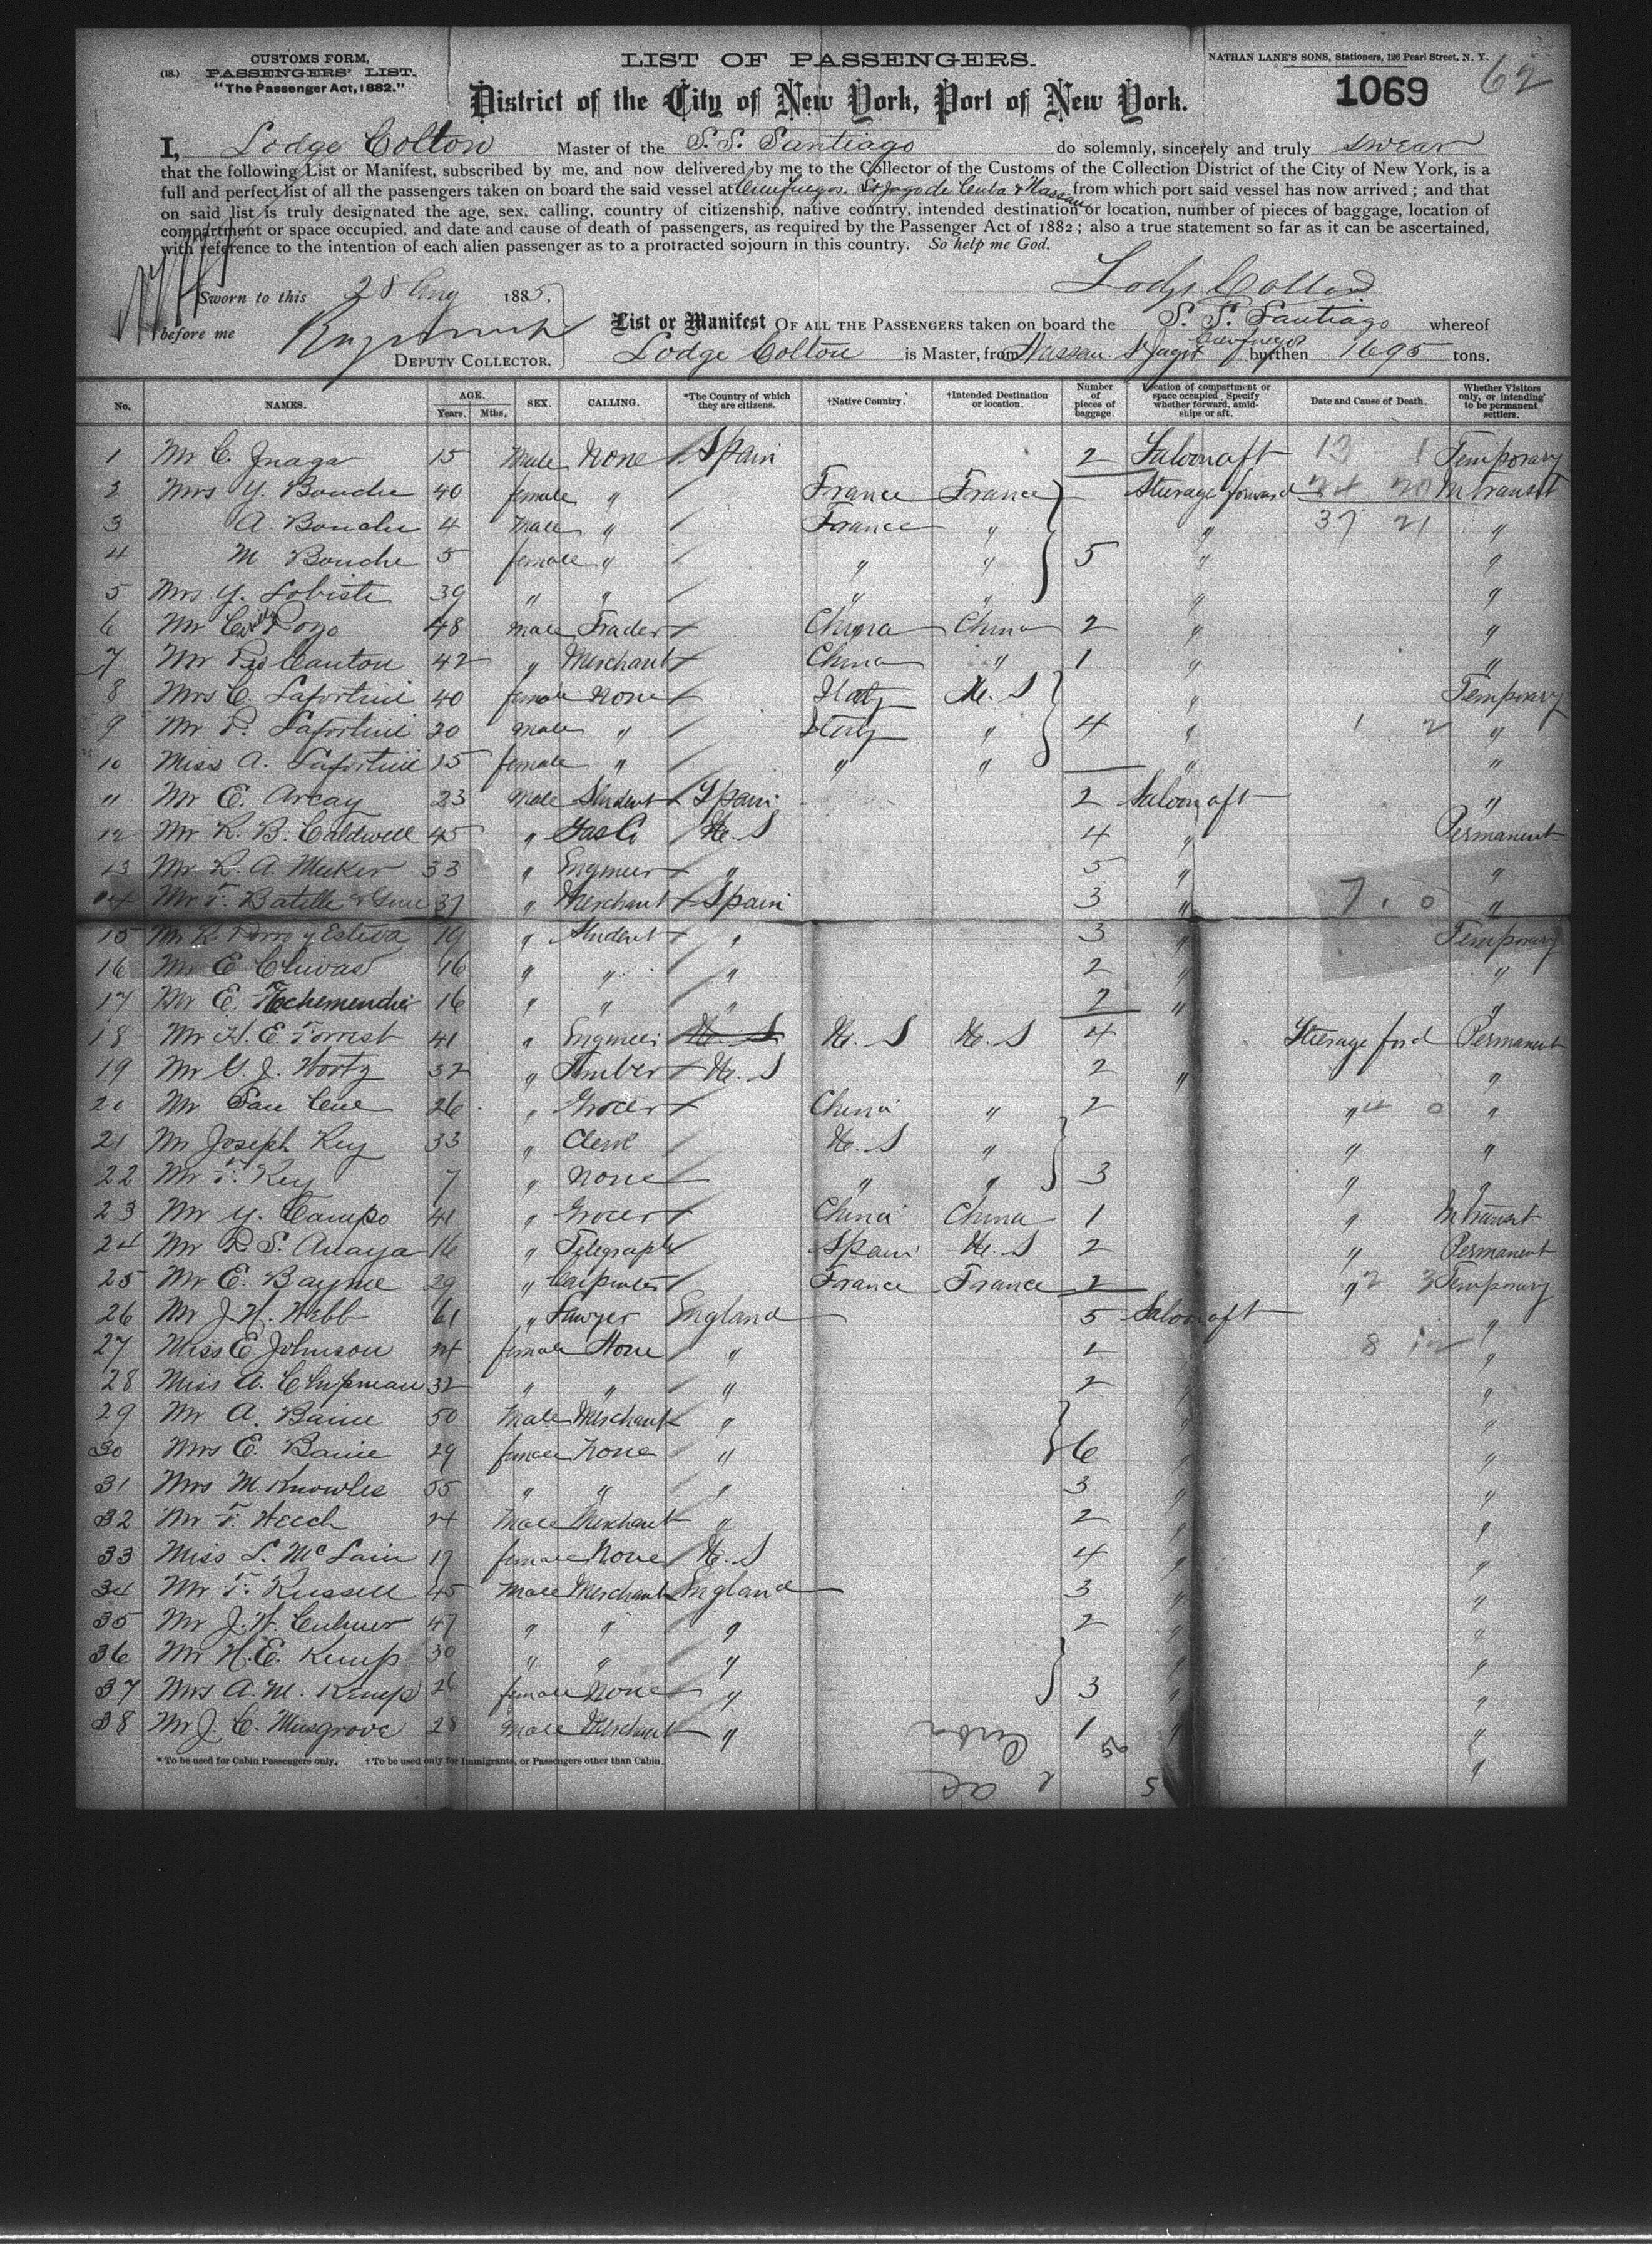 CUSTOMS FORM,
(18.) PASSENGERS' LIST.
"The Passenger Act, 1882."
LIST OF PASSENGERS.
NATHAN LANE'S SONS, Stationers, 126 Pearl Street, N. Y.
District of the City of New York, Port of New York.
1069 62
I, Lodge Colton Master of the S. S. Santiago do solemnly, sincerely and truly swear
that the following List or Manifest, subscribed by me, and now delivered by me to the Collector of the Customs of the Collection District of the City of New York, is a
full and perfect list of all the passengers taken on board the said vessel at Cienfuegos. St Jago de Cuba & Nassau from which port said vessel has now arrived; and that
on said list is truly designated the age, sex, calling, country of citizenship, native country, intended destination or location, number of pieces of baggage, location of
compartment or space occupied, and date and cause of death of passengers, as required by the Passenger Act of 1882; also a true statement so far as it can be ascertained,
with reference to the intention of each alien passenger as to a protracted sojourn in this country. So help me God.
Lodge Colton
Sworn to this 28 Aug 1885.
before me
DEPUTY COLLECTOR.
List or Manifest OF ALL THE PASSENGERS taken on board the S. S. Santiago whereof
Lodge Colton is Master, from Nassau. St Jago Cienfuegos burthen 1695 tons.
No. NAMES. AGE. Years. Mths. SEX. CALLING. *The Country of which they are citizens. †Native Country. †Intended Destination or location. Number of pieces of baggage. Location of compartment or space occupied Specify whether forward, amidships or aft. Date and Cause of Death. Whether Visitors only, or intending to be permanent settlers.
1 Mr C. 15 Male None Spain 2 Saloon aft 13 1 Temporary
2 Mrs Y. Bouche 40 female " France France Steerage forward 24 20 In transit
3 A. Bouche 4 Male " France " " 37 21 "
4 M Bouche 5 female " " " 5 " "
5 Mrs Y. Lobiste 39 " " " " " "
6 Mr Pozo 48 male Trader China China 2 " "
7 Mr Canton 42 " Merchant China " 1 " "
8 Mrs C. Lafortini 40 female none Italy U. S " Temporary
9 Mr P. Lafortini 20 male " Italy " 4 " 1 2 "
10 Miss A. Lafortini 15 female " " " " "
11 Mr E. Arcay 23 Male Student Spain 2 Saloon aft "
12 Mr R. B. Caldwell 45 " U. S 4 " Permanent
13 Mr R. A. Meeker 33 " Engineer " 5 " "
14 Mr F. Batelle 37 " Merchant Spain 3 " 7. 0 "
15 Mr R. y Esteva 19 " Student " 3 " Temporary
16 Mr E Chivas 16 " " " 2 " "
17 Mr E. Echemendia 16 " " " 2 " "
18 Mr H. E. Forrest 41 " Engineer U. S U. S U. S 4 Steerage ford Permanent
19 Mr G. J. Wortz 32 " U. S 2 " "
20 Mr 26 " Grocer China " 2 " 4 0 "
21 Mr Joseph Key 33 " Clerk U. S " " "
22 Mr F. Key 7 " None " " 3 " "
23 Mr Y. Campo 41 " Grocer China China 1 " In transit
24 Mr R S. Anaya 16 " Telegraph Spain U. S 2 " Permanent
25 Mr E. Bayme 29 " Carpenter France France 2 " 2 3 Temporary
26 Mr J. H. Webb 61 " Lawyer England 5 Saloon aft "
27 Miss E Johnson 24 female None " 2 8 12 "
28 Miss A. Chipman 32 " " " 2 " "
29 Mr A. Baine 50 Male Merchant " " "
30 Mrs E. Baine 29 female None " 6 " "
31 Mrs M. Knowles 55 " " " 3 " "
32 Mr F. Weech 24 Male Merchant " 2 " "
33 Miss L. McLain 17 female None U. S 4 " "
34 Mr F. Russell 45 Male Merchant England 3 " "
35 Mr J. W. Culmer 47 " " " 2 " "
36 Mr H. E. Kemp 30 " " " " "
37 Mrs A. M. Kemp 26 female None " 3 " "
38 Mr J. C. Musgrove 28 Male Merchant " 1 " "
* To be used for Cabin Passengers only. † To be used only for Immigrants, or Passengers other than Cabin.